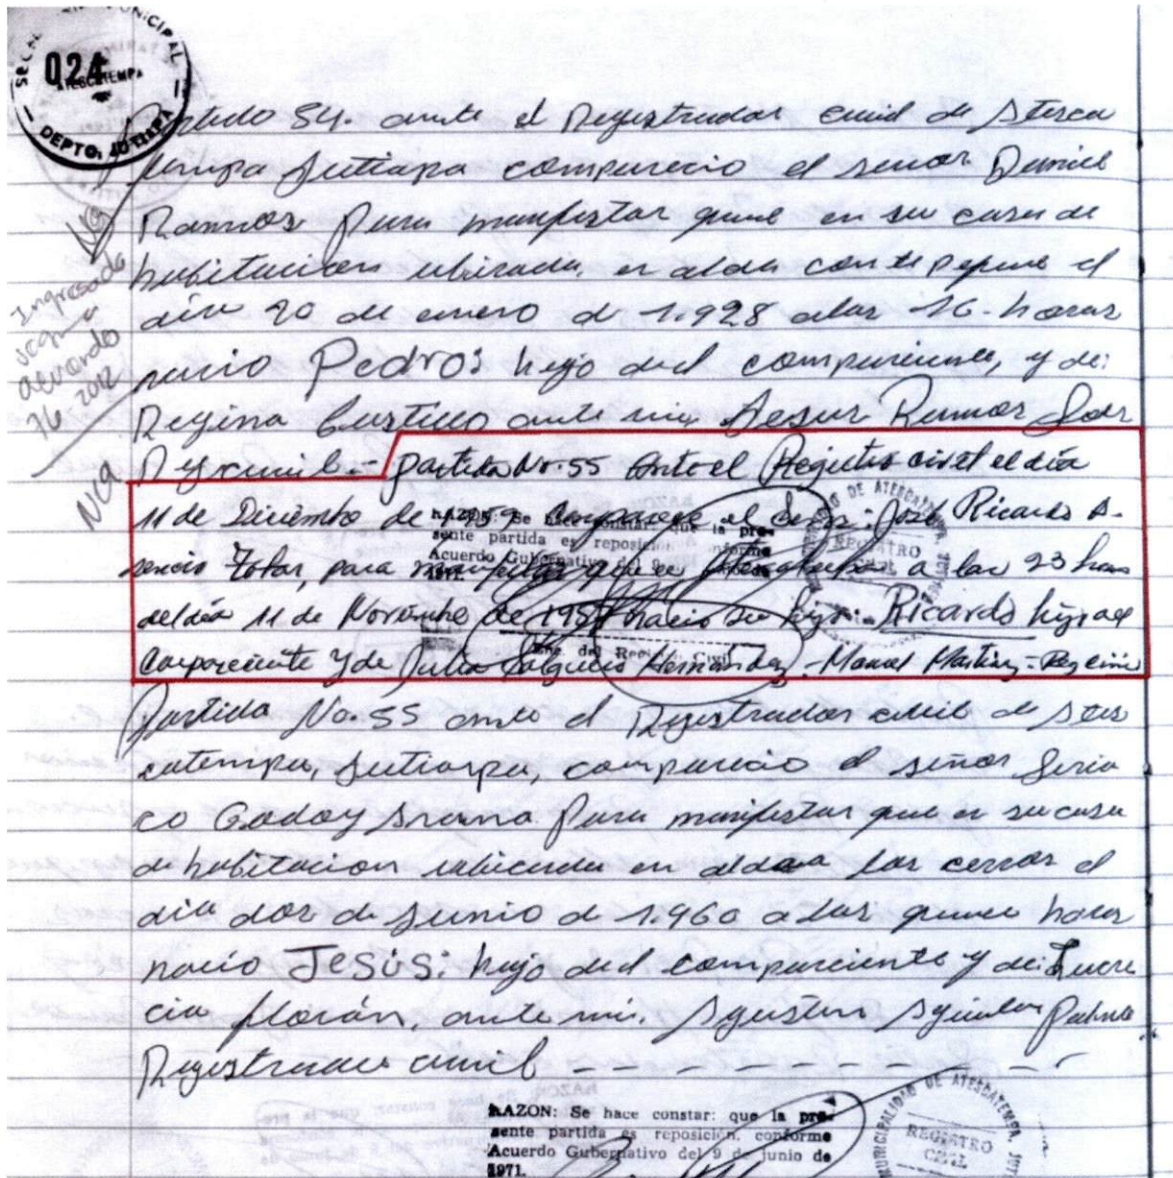 SECRETARIA MUNICIPAL
024
ATESCATEMPA
DEPTO. JUTIAPA
NO
Ingresado
según
acuerdo
76-2012
NCA
Partida 54. ante el Registrador civil de Atesca
tempa Jutiapa comparecio el señor Daniel
Ramos para manifestar que en su casa de
habitacion ubicada en aldea contepeque el
día 20 de enero de 1.928 a las 16 horas
nacio Pedro: hijo del compareciente, y de:
Regina Castillo ante mi Jesus Ramos
R. civil.- Partida No. 55 Ante el Registro civil el día
11 de Diciembre de 1959 Comparece el señor: José Ricardo A-
sencio Tobar, para manifestar que en Atescatempa a las 23 horas
del día 11 de Noviembre de 195 nacio su hijo: Ricardo hijo del
Compareciente y de Julia Salguero Hernández.- Manuel Martinez - Reg civil
RAZON: Se hace constar: que la pre-
sente partida es reposición, conforme
Acuerdo Gubernativo del 9 de junio de
1971.
Enc. del Registro Civil
REGISTRO
CIVIL
Partida No. 55 ante el Registrador civil de Ates
catempa, Jutiapa, comparecio el señor
co Godoy Arana Para manifestar que en su casa
de habitacion ubicada en aldea los cerros el
día dos de Junio de 1.960 a las quince horas
nacio Jesús: hijo del compareciente y de: Lucre
cia florán, ante mi. Agustin Aguilar Palma
Registrador civil - - - - - - - - -
RAZON: Se hace constar: que la pre-
sente partida es reposición, conforme
Acuerdo Gubernativo del 9 de junio de
1971.
MUNICIPALIDAD DE ATESCATEMPA, JUT
REGISTRO
CIVIL